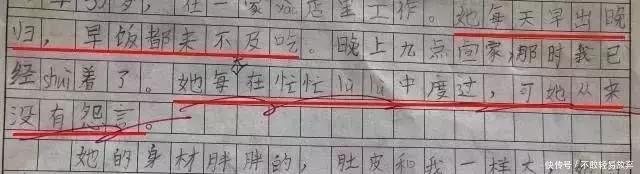 岁，在一家饭店里工作。她每天早出晚
归，早饭都来不及吃。晚上九点回家，那时我已
经shuì着了。她每在忙忙lù lù中度过，可她从来
没有怨言。
她的身材胖胖的，肚皮和我一样大
快传号／不敢轻易放弃